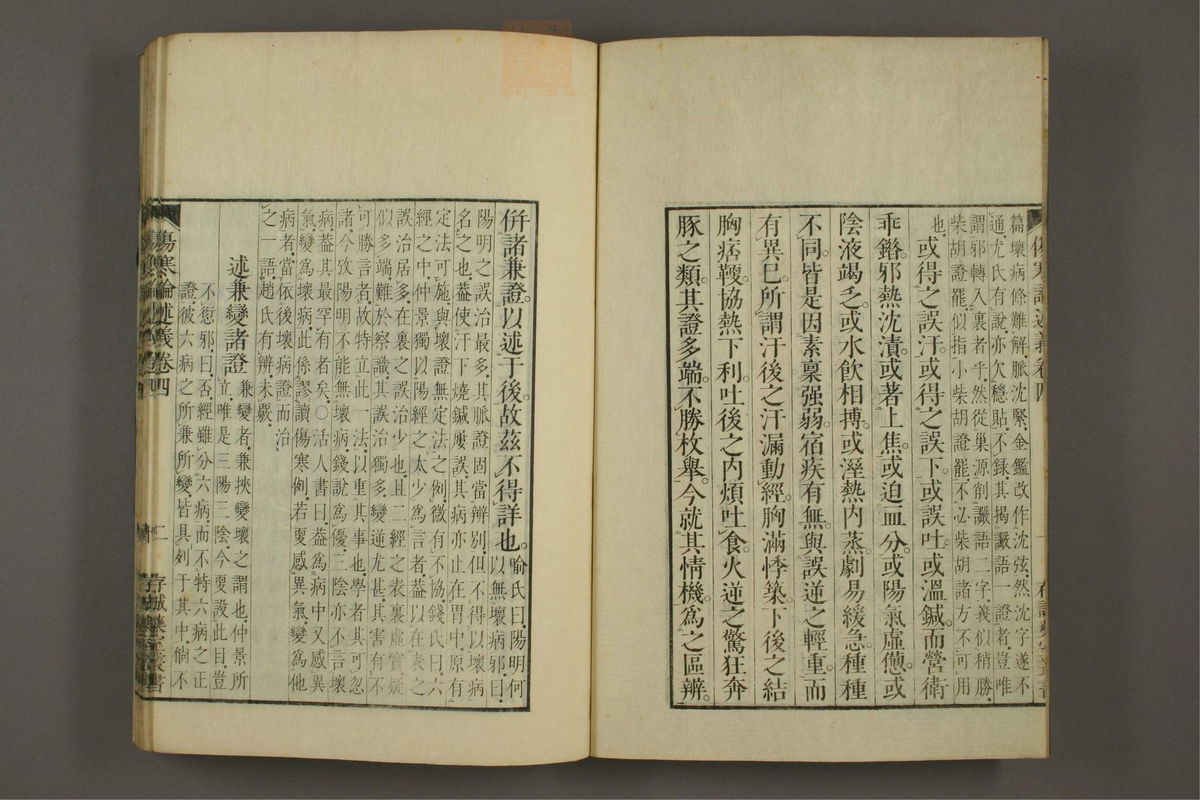 篇壞病條難解脈沈緊金鑑改作沈弦然沈字遂不
通尤氏有說亦欠穩貼不錄其揭讝語一證者豈唯
謂邪轉入裏者乎然從巢源創讝語二字義似稍勝
柴胡證罷似指小柴胡證罷不必柴胡諸方不可用
也或得之誤汗或得之誤下或誤吐或溫鍼而營衛
乖錯邪熱沈漬或著上焦或迫血分或陽氣虛憊或
陰液竭乏或水飲相搏或溼熱內蒸劇易緩急種種
不同皆是因素稟强弱宿疾有無與誤逆之輕重而
有異已所謂汗後之汗漏動經胸滿悸築下後之結
胸痞鞕協熱下利吐後之內煩吐食火逆之驚狂奔
豚之類其證多端不勝枚舉今就其情機為之區辨
併諸兼證以述于後故茲不得詳也喻氏曰陽明何以無壞病邪曰
陽明之誤治最多其脈證固當辨別但不得以壞病
名之也葢使汗下燒鍼屢誤其病亦止在胃中原有
定法可施與壞證無定法之例徵有不協錢氏曰六
經之中仲景獨以陽經之太少為言者葢以在表之
誤治居多在裏之誤治少也且二經之表裏虛實疑
似多端難於察識其誤治獨多變逆尤甚其害有不
可勝言者故特立此一法以重其事也學者其可忽
諸今攷陽明不能無壞病錢說為優三陰亦不言壞
病葢其最罕有者矣○活人書曰葢為病中又感異
氣變為壞病此係謬讀傷寒例若更感異氣變為他
病者當依後壞病證而治
之一語趙氏有辨未覈
述兼變諸證
兼變者兼挾變壞之謂也仲景所
立唯是三陽三陰今更設此目豈
不愆邪曰否經雖分六病而不特六病之正
證彼六病之所兼所變皆具列于其中倘不
傷寒論述義卷四
二
存誠藥室叢書